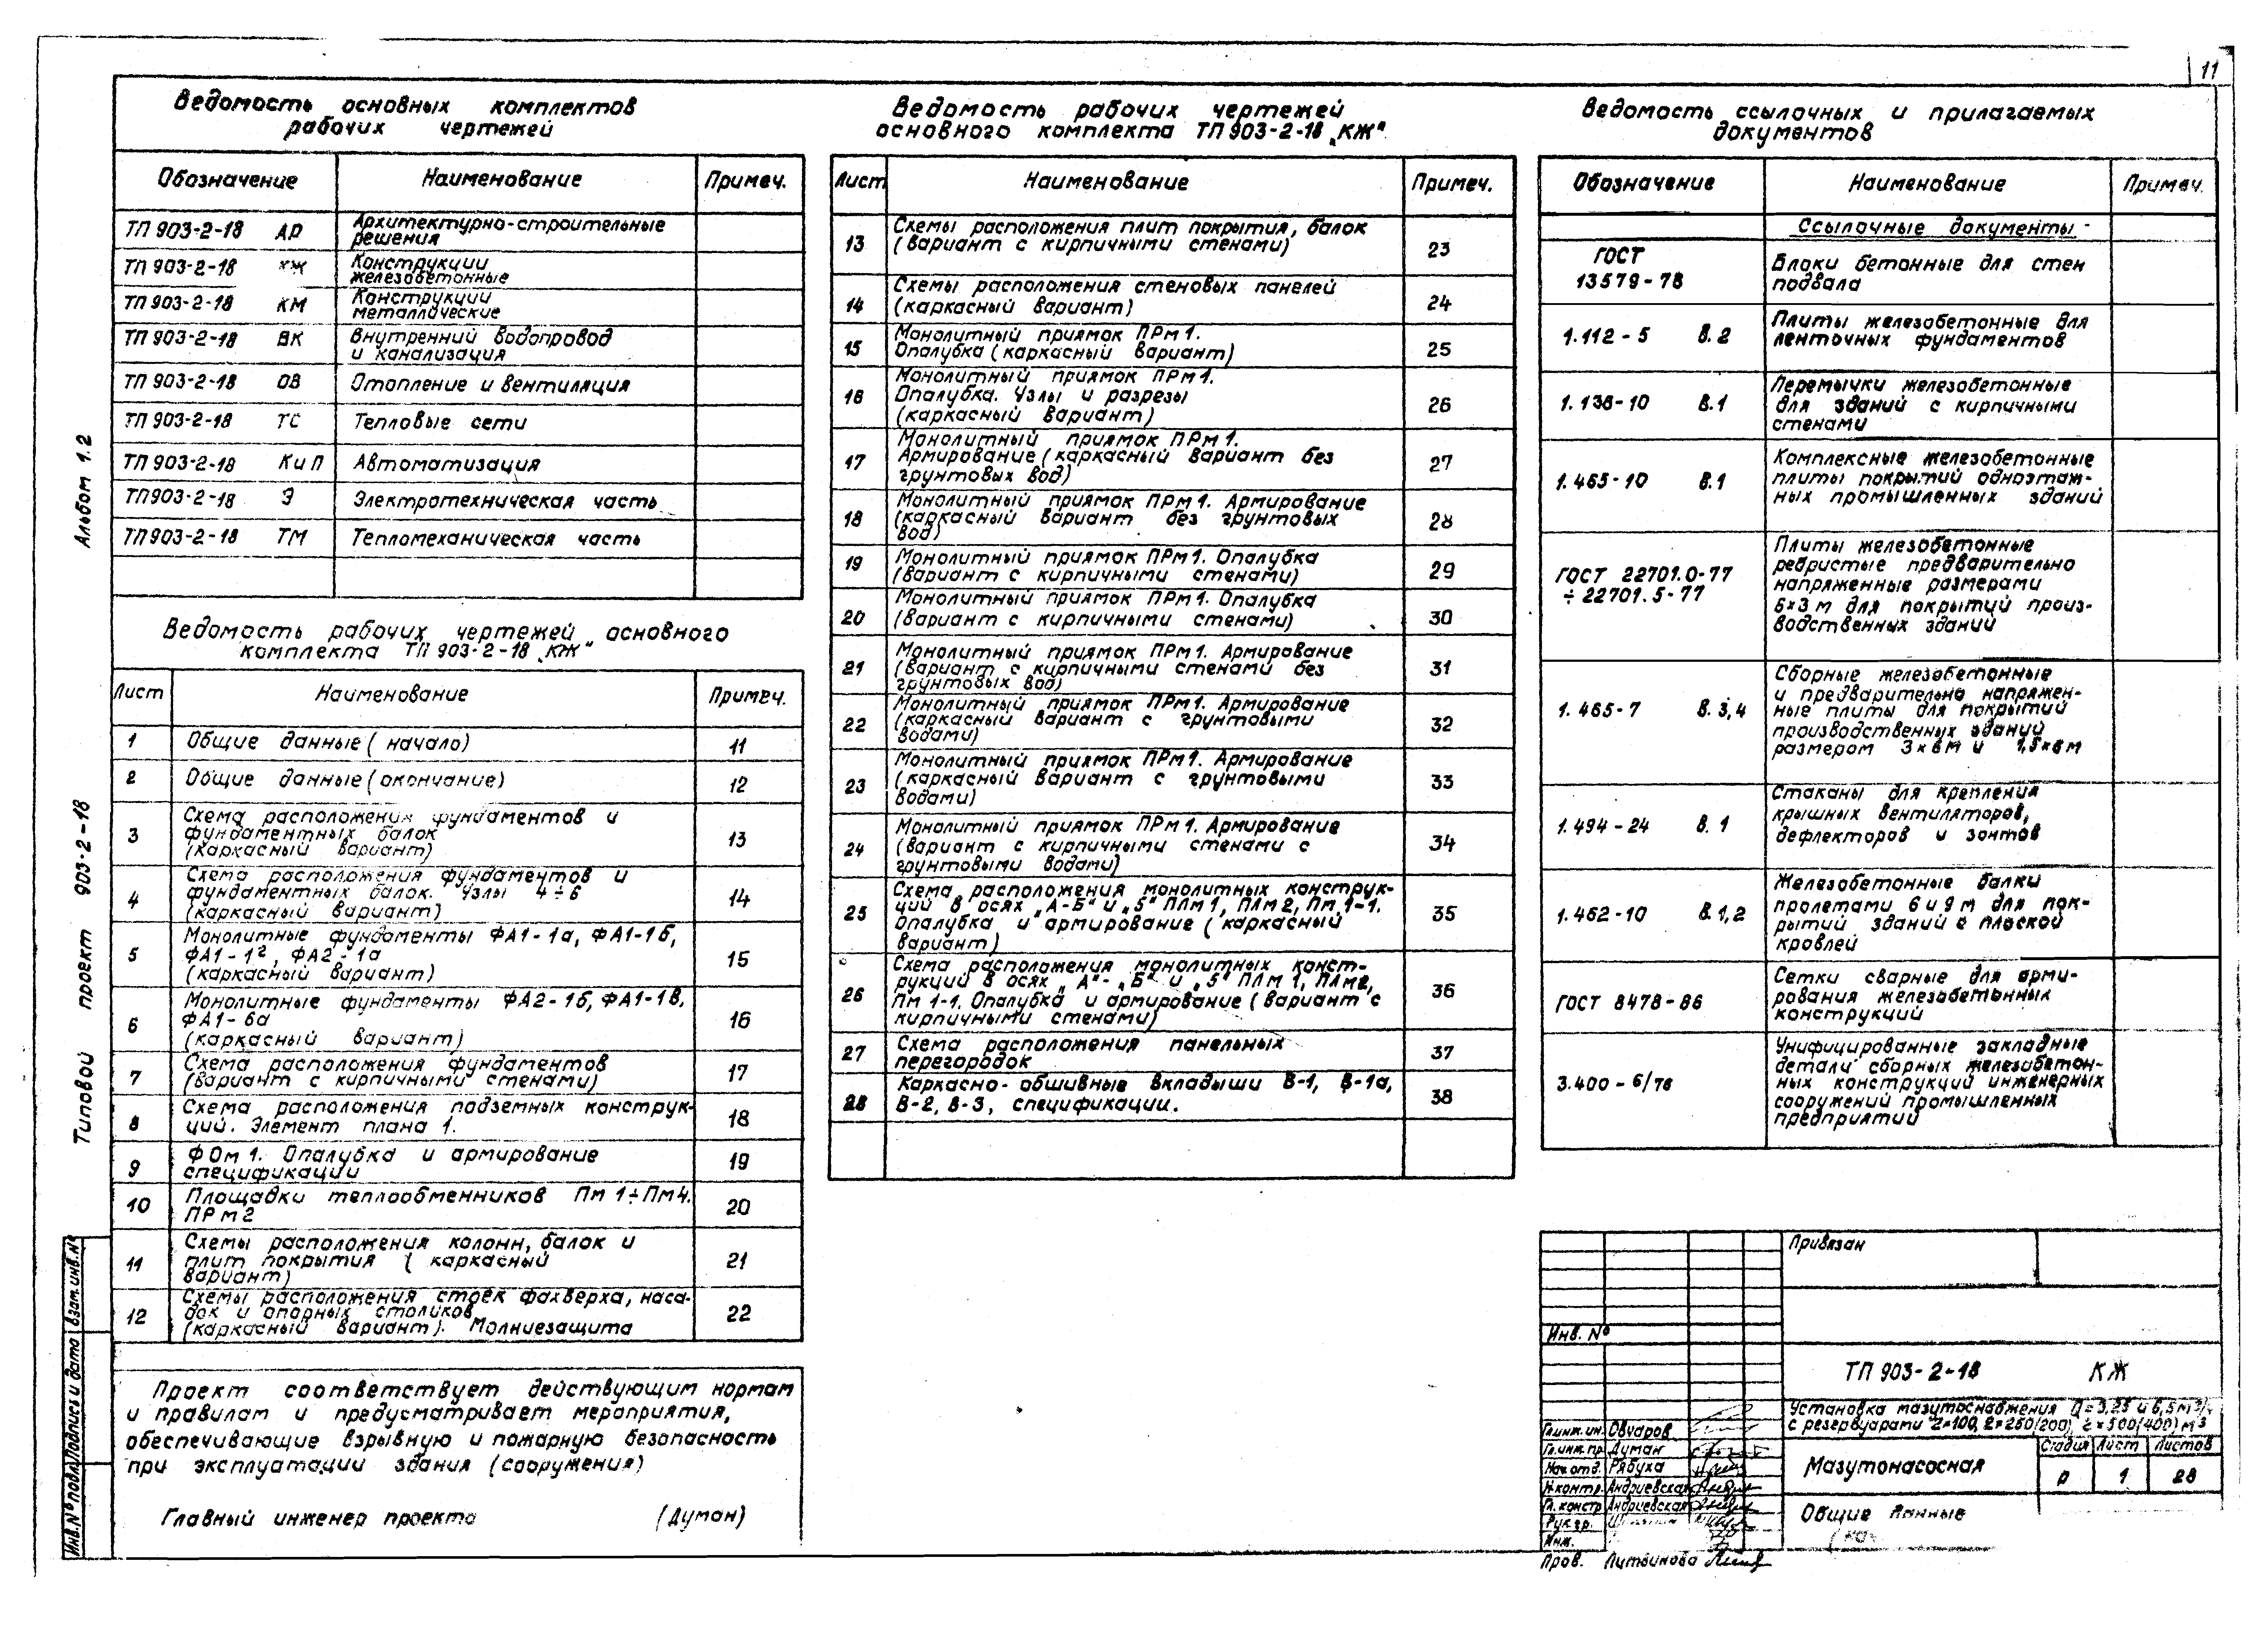 11
Ведомость основных комплектов
рабочих чертежей
Обозначение Наименование Примеч.
ТП 903-2-18 АР Архитектурно-строительные
решения
ТП 903-2-18 КЖ Конструкции
железобетонные
ТП 903-2-18 КМ Конструкции
металлические
ТП 903-2-18 ВК Внутренний водопровод
и канализация
ТП 903-2-18 ОВ Отопление и вентиляция
ТП 903-2-18 ТС Тепловые сети
ТП 903-2-18 КиП Автоматизация
ТП 903-2-18 Э Электротехническая часть
ТП 903-2-18 ТМ Тепломеханическая часть
Ведомость рабочих чертежей основного
комплекта ТП 903-2-18 „КЖ“
Лист Наименование Примеч.
1 Общие данные (начало) 11
2 Общие данные (окончание) 12
3 Схема расположения фундаментов и
фундаментных балок
(каркасный вариант) 13
4 Схема расположения фундаментов и
фундаментных балок. Узлы 4÷6
(каркасный вариант) 14
5 Монолитные фундаменты ФА1-1а, ФА1-1б,
ФА1-1г, ФА2-1а
(каркасный вариант) 15
6 Монолитные фундаменты ФА2-1б, ФА1-1в,
ФА1-6а
(каркасный вариант) 16
7 Схема расположения фундаментов
(вариант с кирпичными стенами) 17
8 Схема расположения подземных конструк-
ций. Элемент плана 1. 18
9 ФОм 1. Опалубка и армирование
спецификации 19
10 Площадки теплообменников Пм 1÷Пм4.
ПРм2 20
11 Схемы расположения колонн, балок и
плит покрытия (каркасный
вариант) 21
12 Схемы расположения стоек фахверка, наса-
док и опорных столиков
(каркасный вариант). Молниезащита 22
Проект соответствует действующим нормам
и правилам и предусматривает мероприятия,
обеспечивающие взрывную и пожарную безопасность
при эксплуатации здания (сооружения)
Главный инженер проекта (Думан)
Ведомость рабочих чертежей
основного комплекта ТП 903-2-18 „КЖ“
Лист Наименование Примеч.
13 Схемы расположения плит покрытия, балок
(вариант с кирпичными стенами) 23
14 Схемы расположения стеновых панелей
(каркасный вариант) 24
15 Монолитный приямок ПРм1.
Опалубка (каркасный вариант) 25
16 Монолитный приямок ПРм1.
Опалубка. Узлы и разрезы
(каркасный вариант) 26
17 Монолитный приямок ПРм1.
Армирование (каркасный вариант без
грунтовых вод) 27
18 Монолитный приямок ПРм1. Армирование
(каркасный вариант без грунтовых
вод) 28
19 Монолитный приямок ПРм1. Опалубка
(вариант с кирпичными стенами) 29
20 Монолитный приямок ПРм1. Опалубка
(вариант с кирпичными стенами) 30
21 Монолитный приямок ПРм1. Армирование
(вариант с кирпичными стенами без
грунтовых вод) 31
22 Монолитный приямок ПРм1. Армирование
(каркасный вариант с грунтовыми
водами) 32
23 Монолитный приямок ПРм1. Армирование
(каркасный вариант с грунтовыми
водами) 33
24 Монолитный приямок ПРм1. Армирование
(вариант с кирпичными стенами с
грунтовыми водами) 34
25 Схема расположения монолитных конструк-
ций в осях „А-Б“ и „5“ ПЛм1, ПЛм2, Пм 1-1.
Опалубка и армирование (каркасный
вариант) 35
26 Схема расположения монолитных конст-
рукций в осях „А“-„Б“ и „5“ ПЛм 1, ПЛм2,
Пм 1-1. Опалубка и армирование (вариант с
кирпичными стенами) 36
27 Схема расположения панельных
перегородок 37
28 Каркасно-обшивные вкладыши В-1, В-1а,
В-2, В-3, спецификации. 38
Ведомость ссылочных и прилагаемых
документов
Обозначение Наименование Примеч.
Ссылочные документы
ГОСТ
13579-78 Блоки бетонные для стен
подвала
1.112-5 В.2 Плиты железобетонные для
ленточных фундаментов
1.138-10 В.1 Перемычки железобетонные
для зданий с кирпичными
стенами
1.465-10 В.1 Комплексные железобетонные
плиты покрытий одноэтаж-
ных промышленных зданий
ГОСТ 22701.0-77
÷22701.5-77 Плиты железобетонные
ребристые предварительно
напряженные размерами
6×3 м для покрытий произ-
водственных зданий
1.465-7 В.3,4 Сборные железобетонные
и предварительно напряжен-
ные плиты для покрытий
производственных зданий
размером 3×6м и 1,5×6м
1.494-24 В.1 Стаканы для крепления
крышных вентиляторов,
дефлекторов и зонтов
1.462-10 В.1,2 Железобетонные балки
пролетами 6 и 9 м для пок-
рытий зданий с плоской
кровлей
ГОСТ 8478-86 Сетки сварные для арми-
рования железобетонных
конструкций
3.400-6/76 Унифицированные закладные
детали сборных железобетон-
ных конструкций инженерных
сооружений промышленных
предприятий
Привязан
Инв. №
ТП 903-2-18 КЖ
Установка мазутоснабжения Q=3,25 и 6,5м³/ч
с резервуарами 2×100, 2×250(200), 2×500(400)м³
Гл.инж.ин. Овчаров
Гл.инж.пр. Думан
Нач.отд. Рябуха
Н.контр. Андриевская
Гл.констр. Андриевская
Рук.гр.
Инж.
Пров. Литвинова
Мазутонасосная
Стадия Лист Листов
Р 1 28
Общие данные
Альбом 1.2
Типовой проект 903-2-18
Инв.№ подл. Подпись и дата Взам.инв.№